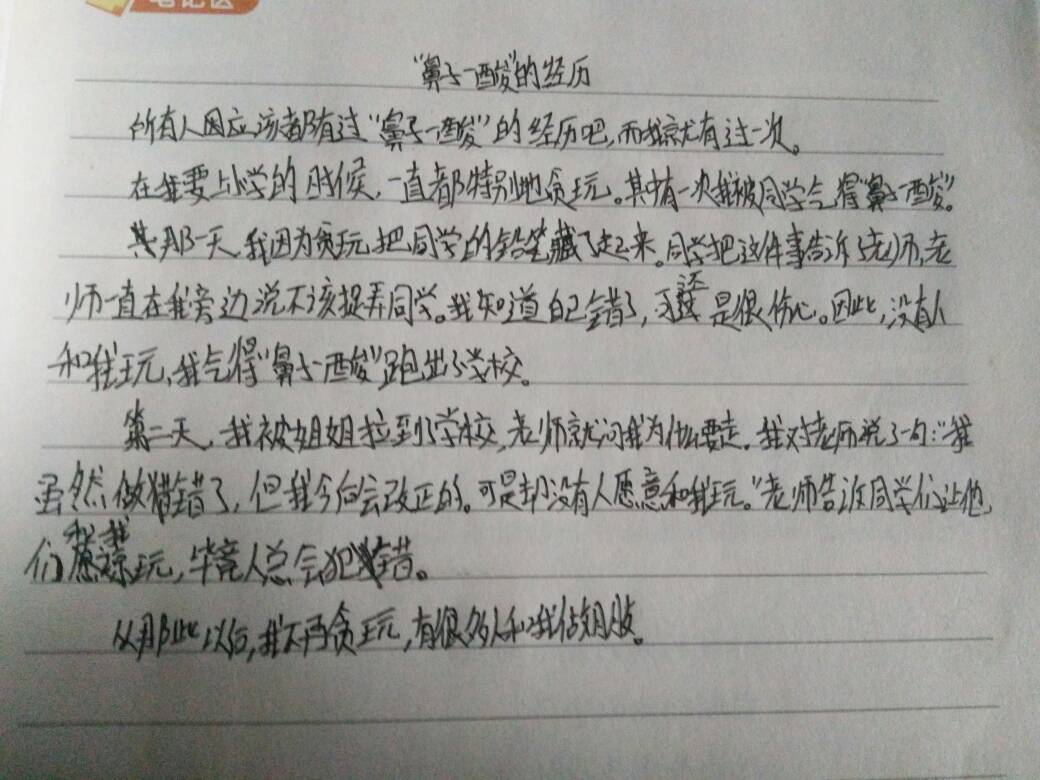 笔记区
“鼻子一酸”的经历
所有人因应该都有过“鼻子一酸”的经历吧,而我就有过一次。
在我要上小学的时候,一直都特别地贪玩。其中有一次我被同学气得“鼻子一酸”。
其那一天,我因为贪玩把同学的铅笔藏了起来。同学把这件事告诉了老师,老
师一直在我旁边说不该捉弄同学。我知道自己错了,可还是很伤心。因此,没有人
和我玩,我气得“鼻子一酸”跑出了学校。
第二天,我被姐姐拉到了学校,老师就问我为什么要走。我对老师说了一句:“我
虽然做错了,但我今后会改正的。可是却没有人愿意和我玩。”老师告诉同学们让他
们和我玩,毕竟人总会犯错。
从那此以后,我不再贪玩,有很多人和我做朋友。